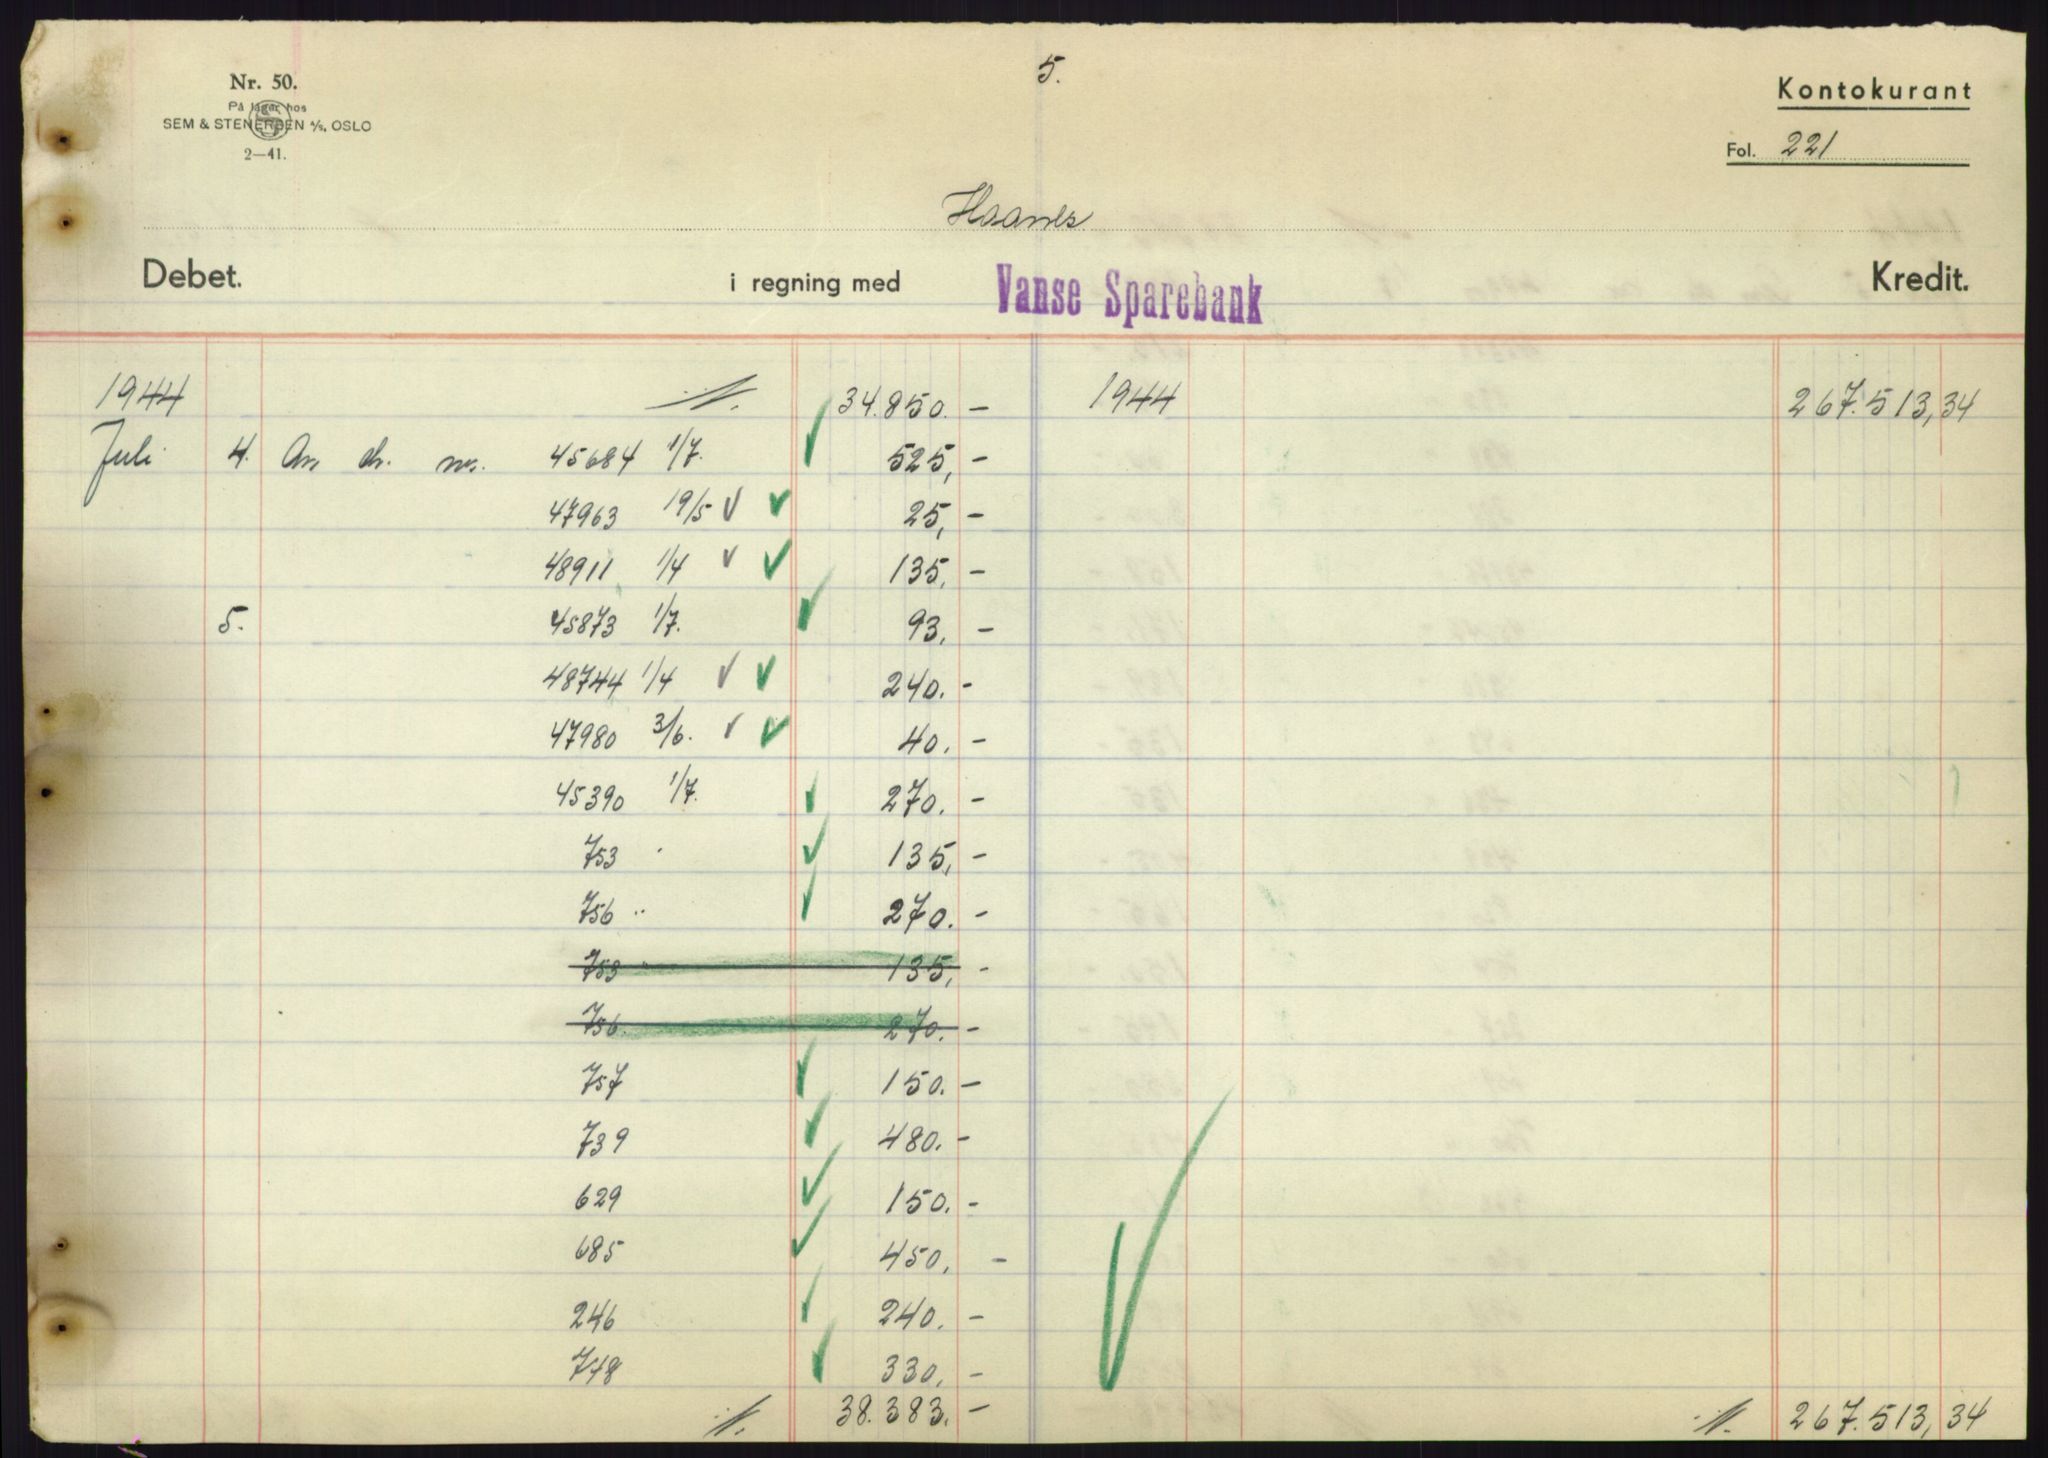 Nr. 50.
På lager hos
SEM & STENERSEN A/S, OSLO
2—41.
5.
Kontokurant
Fol. 221
Haanes
Debet. i regning med Vanse Sparebank Kredit.
1944 34.850.- 1944 267.513,34
Juli 4. An ch. nr. 45684 1/7. 525,-
47963 19/5 25,-
48911 1/4 135,-
5. 45873 1/7. 93,-
48744 1/4 240.-
47980 3/6. 40.-
45390 1/7. 270.-
753 " 135,-
756 " 270.-
753 " 135,-
756 270.-
757 150.-
739 480.-
629 150.-
685 450,-
246 240.-
748 330,-
38.383.- 267.513,34